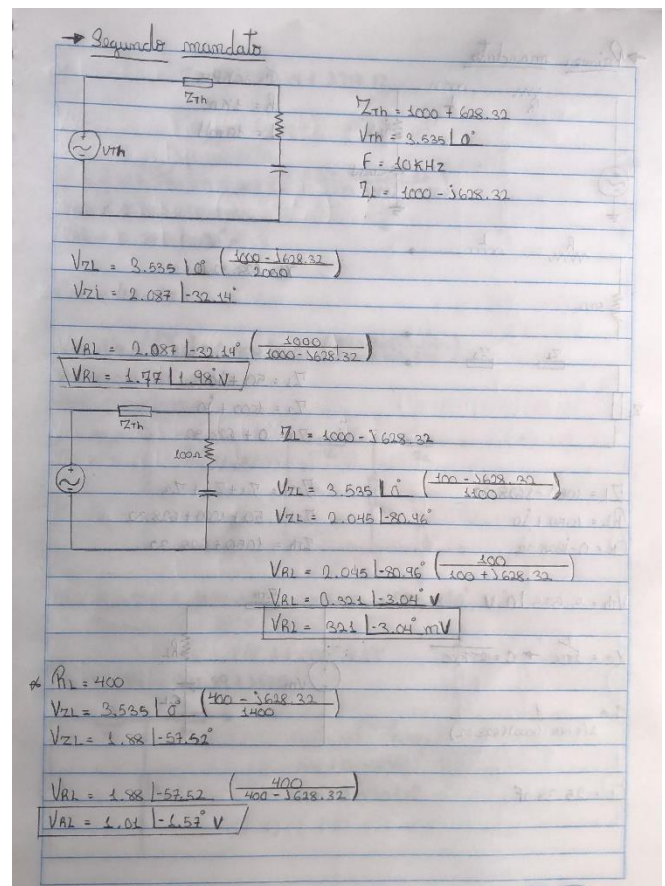 → Segundo mandato
ZTh
VTh
ZTh = 1000 + 628.32
VTh = 3.535 ⌊0°
F = 10KHz
ZL = 1000 - j628.32
VZL = 3.535 ⌊0° (1000 - j628.32 / 2000)
VZL = 2.087 ⌊-32.14°
VRL = 2.087 ⌊-32.14° (1000 / 1000 - j628.32)
VRL = 1.77 ⌊1.98° V
ZTh
100Ω
ZL = 1000 - j628.32
VZL = 3.535 ⌊0° (100 - j628.32 / 1100)
VZL = 2.045 ⌊-80.96°
VRL = 2.045 ⌊-80.96° (100 / 100 + j628.32)
VRL = 0.321 ⌊-3.04° V
VRL = 321 ⌊-3.04° mV
* RL = 400
VZL = 3.535 ⌊0° (400 - j628.32 / 1400)
VZL = 1.88 ⌊-57.52°
VRL = 1.88 ⌊-57.52 (400 / 400 - j628.32)
VRL = 1.01 ⌊-1.57° V